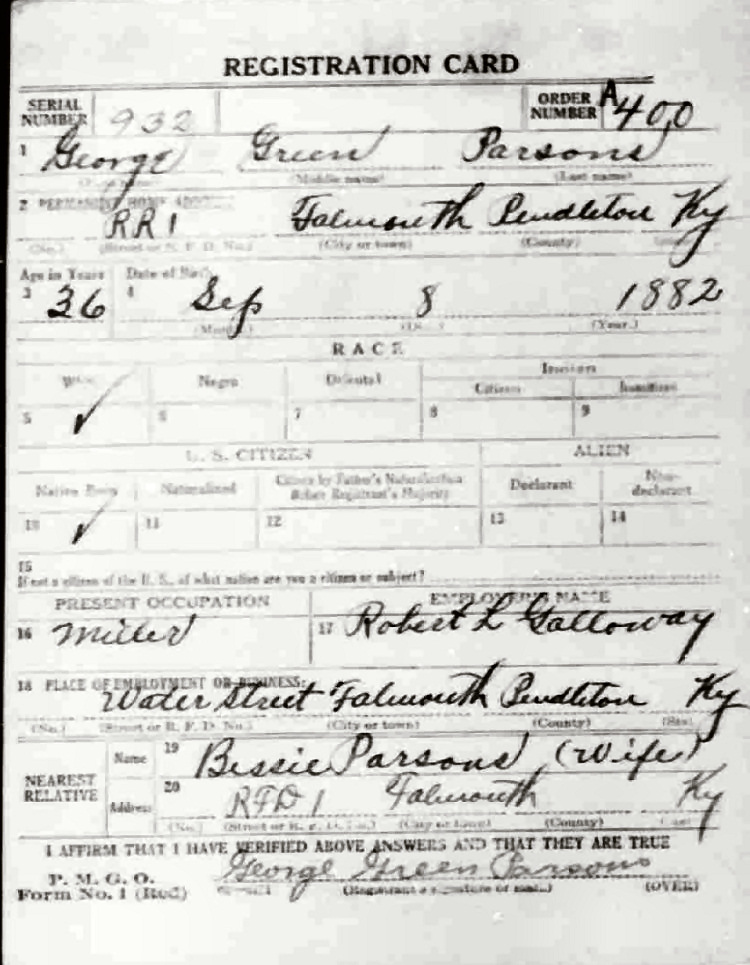 REGISTRATION CARD
SERIAL NUMBER 932 ORDER NUMBER A400
1 George Green Parsons
(Middle name) (Last name)
2 PERMANENT HOME
RR1 Falmouth Pendleton Ky
(No.) (Street or R. F. D. No.) (City or town) (County)
Age in Years Date of Birth
3 36 4 Sep 8 1882
(Month) (Year.)
RACE
White Negro Oriental Indian
Citizen Noncitizen
5 ✓ 6 7 8 9
U. S. CITIZEN ALIEN
Native Born Naturalized Citizen by Father's Naturalization Before Registrant's Majority Declarant Non-declarant
10 ✓ 11 12 13 14
15
If not a citizen of the U. S., of what nation are you a citizen or subject?
PRESENT OCCUPATION EMPLOYER'S NAME
16 Miller 17 Robert L Galloway
18 PLACE OF EMPLOYMENT OR BUSINESS:
Water Street Falmouth Pendleton Ky
(No.) (Street or R. F. D. No.) (City or town) (County) (State)
NEAREST RELATIVE Name 19 Bessie Parsons (Wife)
Address 20 RFD 1 Falmouth Ky
(No.) (Street or R. F. D. No.) (City or town) (County)
I AFFIRM THAT I HAVE VERIFIED ABOVE ANSWERS AND THAT THEY ARE TRUE
P. M. G. O. George Green Parsons
Form No. 1 (Red) (Registrant's signature or mark) (OVER)